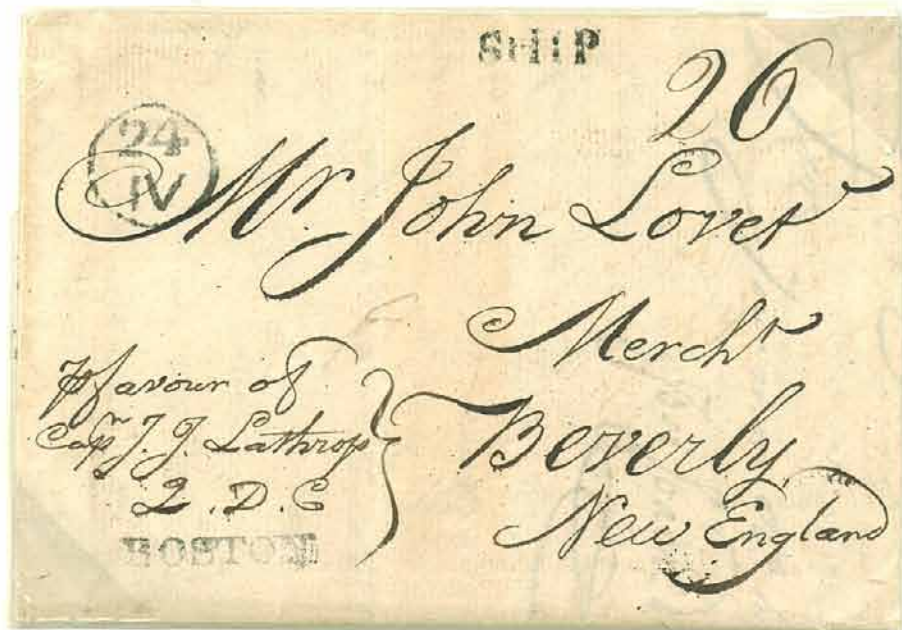 SHIP
26
24
IV
Mr. John Lovet
Mercht
Beverly,
New England
favour of
Capn J. J. Lathrop
Q. D. C
BOSTON